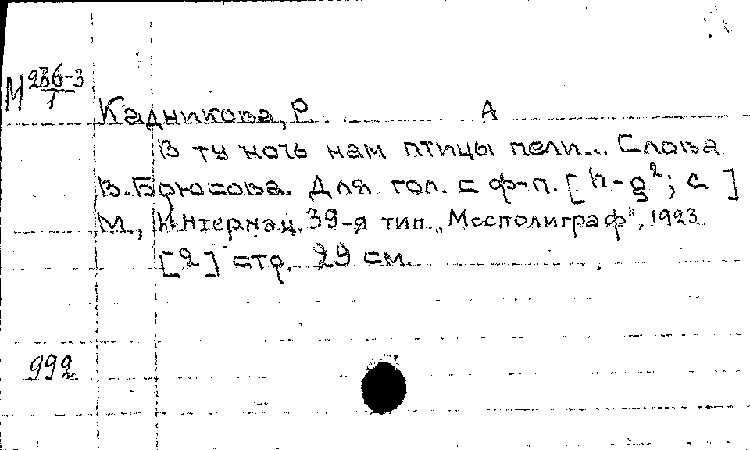 М 236-3/1
Кадникова, Р. А
В ту ночь нам птицы пели... Слова
В. Брюсова. Для гол. с ф-п. [h-g²; с ]
М., Интернац. 39-я тип. „Мосполиграф", 1923
[2] стр. 29 см.
992